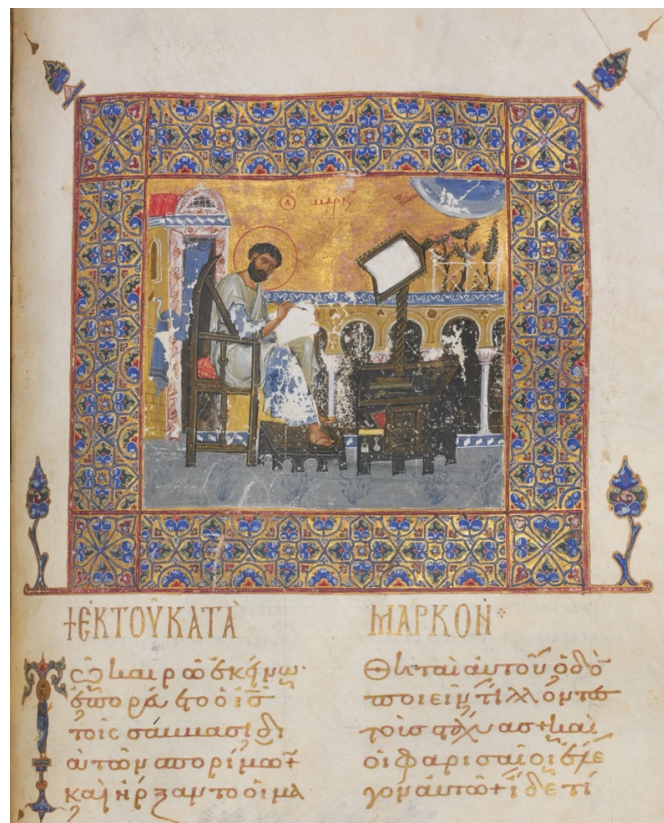 Ⓐ μαρκ
+ ΕΚ ΤΟΥ ΚΑΤΑ ΜΑΡΚΟΝ
Τῶ καιρῶ ἐκείνω·
ἐπορεύετο ὁ ι̅ς̅
τοῖς σάββασι δι
ὰ τῶν σπορίμων+
καὶ ἤρξαντο οἱ μα
θηταὶ αὐτοῦ ὁδὸ
ποιεῖν τίλλοντες
τοὺς στάχυας+ καὶ
οἱ φαρισαῖοι ἔλε
γον αὐτῶ+ ἴδε τί